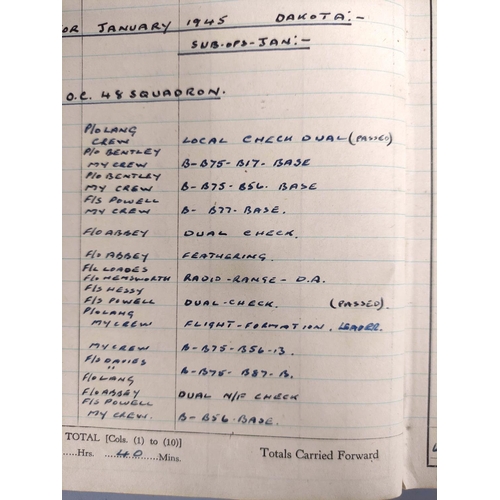 OR JANUARY 1945 DAKOTA:-
SUB-OPS-JAN:-
O.C. 48 SQUADRON.
P/O LANG
CREW LOCAL CHECK DUAL (PASSED)
P/O BENTLEY
MY CREW B-B75-B17-BASE
P/O BENTLEY
MY CREW B-B75-B56-BASE
F/S POWELL
MY CREW B-B77-BASE.
F/O ABBEY DUAL CHECK.
F/O ABBEY FEATHERING.
F/L LOADES
F/O HEMSWORTH RADIO-RANGE-D.A.
F/S HESSY
F/S POWELL DUAL-CHECK. (PASSED)
P/O LANG
MY CREW FLIGHT-FORMATION. LEADER.
MY CREW B-B75-B56-B.
F/O DAVIES
" B-B75-B87-B.
F/O LANG
F/O ABBEY DUAL N/F CHECK
F/S POWELL
MY CREW. B-B56-BASE.
TOTAL [Cols. (1) to (10)]
......Hrs. 40 Mins. Totals Carried Forward